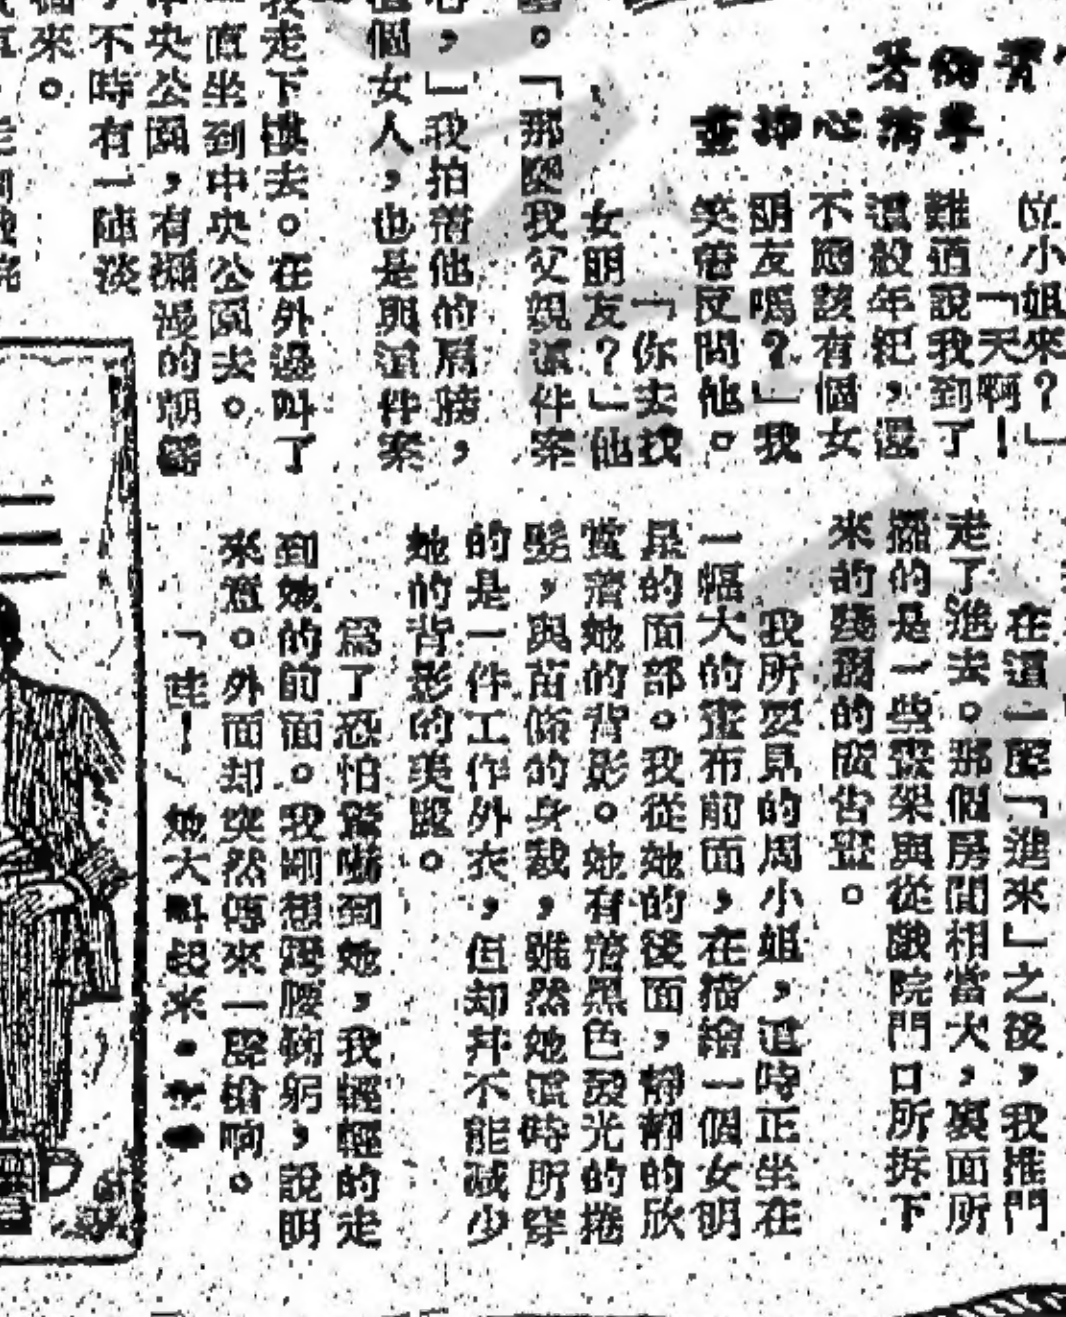 位小姐來?」
「天啊!
難道說我到了
這般年紀,還
不應該有個女
朋友嗎?」我
笑着反問他。
「你去找
女朋友?」他
。「那麼我父親這件案
,」我拍着他的肩膀,
個女人,也是與這件案
我走下樓去。在外邊叫了
一直坐到中央公園去。
中央公園,有瀰漫的
不時有一陣淡
來。
在這一聲「進來」之後,我推門
走了進去。那個房間相當大,裏面所
擺的是一些畫架與從戲院門口所拆下
來的殘餘的廣告畫。
我所要見的周小姐,這時正坐在
一幅大的畫布前面,在描繪一個女明
星的面部。我從她的後面,靜靜的欣
賞着她的背影。她有着黑色發光的捲
髮,與苗條的身裁,雖然她當時所穿
的是一件工作外衣,但却并不能减少
她的背影的美麗。
為了恐怕驚嚇到她,我輕輕的走
到她的前面。我剛想彎腰鞠躬,說明
來意。外面却突然傳來一聲槍响。
「哇!」她大叫起來。
二